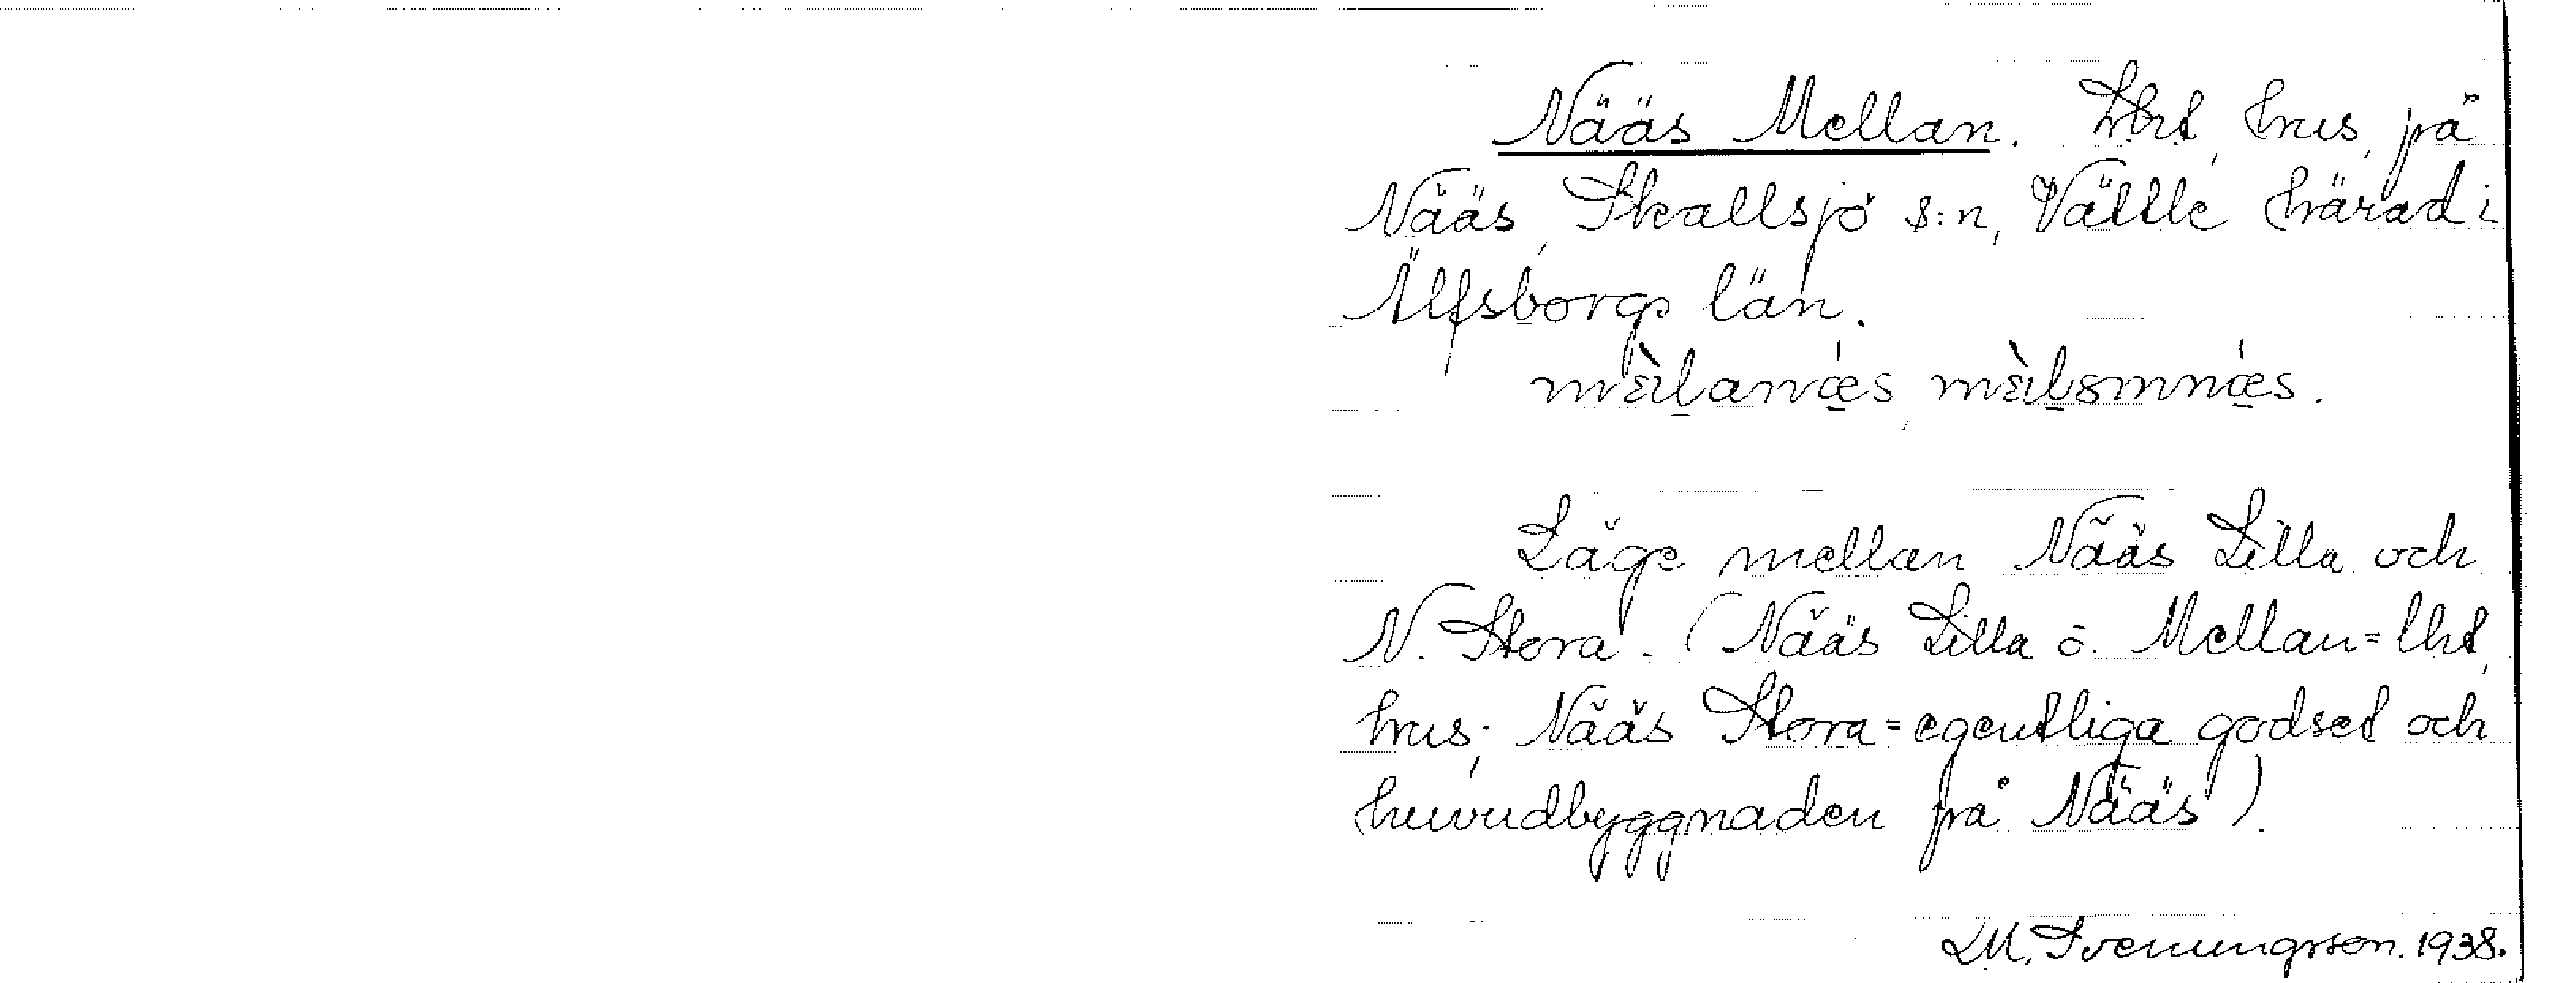 Nääs Mellan. Lht, hus, på
Nääs, Skallsjö s:n, Vättle härad i
Älfsborgs län.
Läge mellan Nääs Lilla och
N. Stora. (Nääs Lilla o. Mellan = lht,
hus; Nääs Stora = egentliga godset och
huvudbyggnaden på Nääs).
L.M. Svenungsson. 1938.